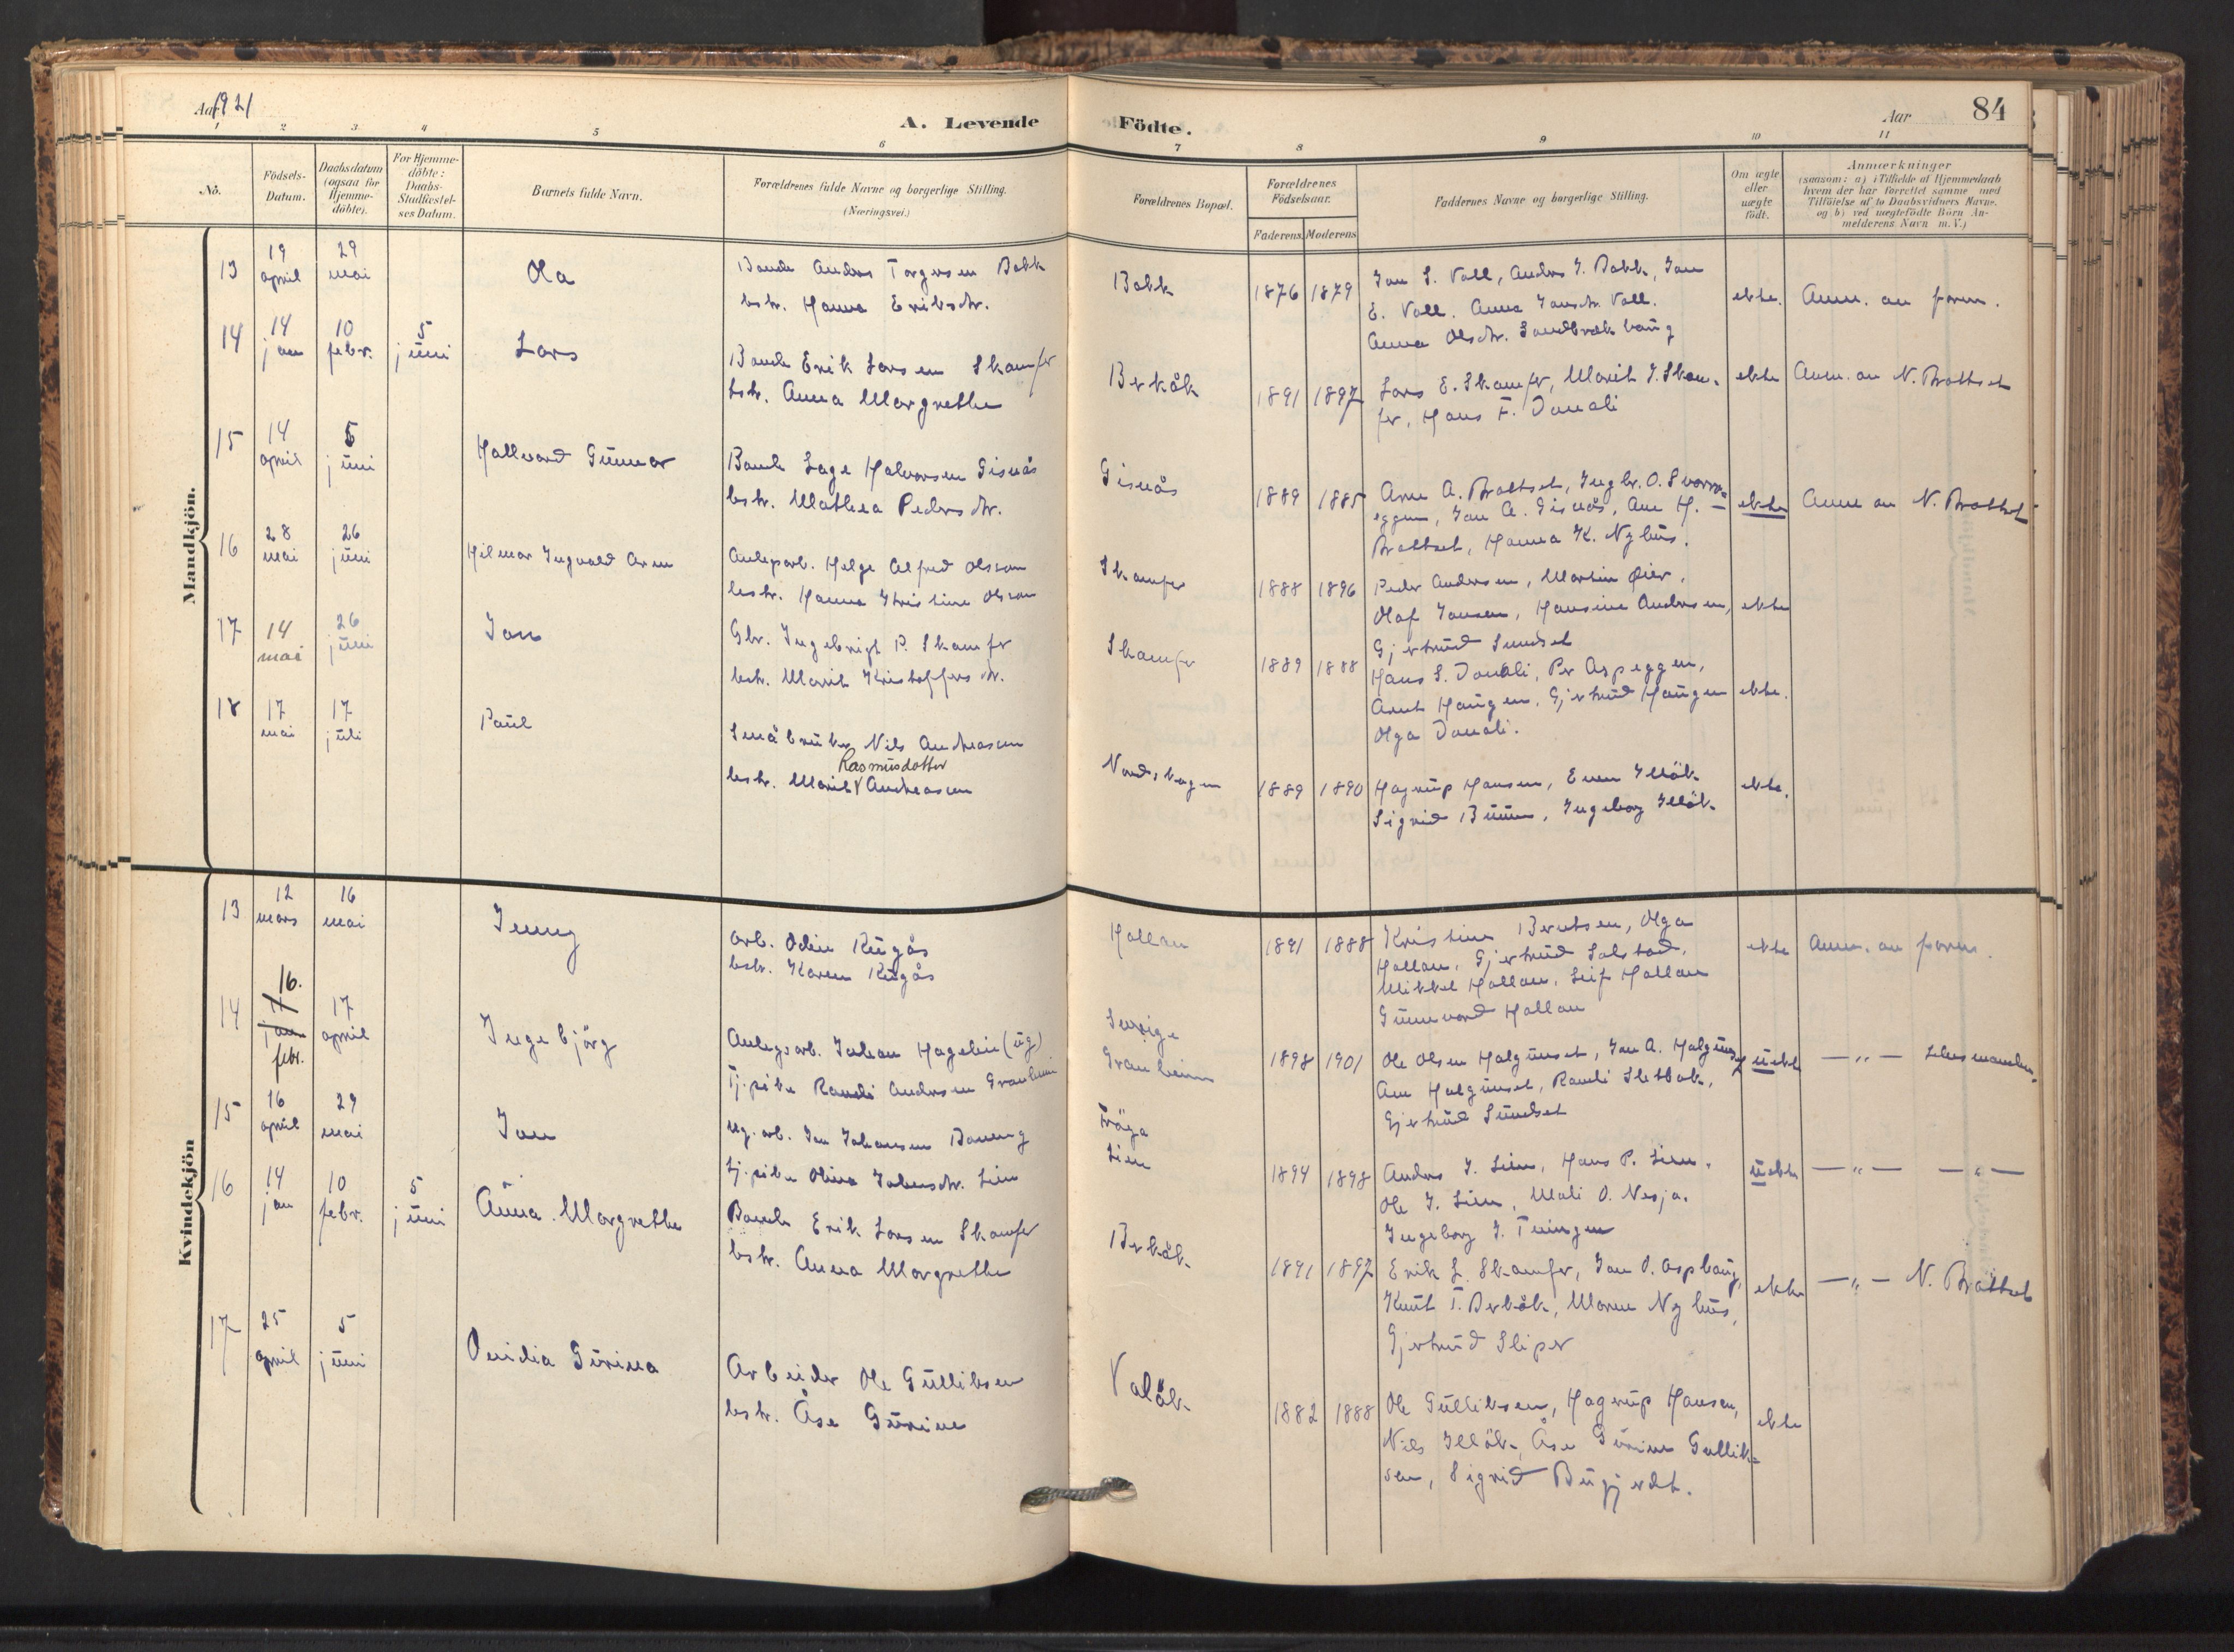 Aar 1921
A. Levende Födte.
Aar
84
1 2 3 4 5 6 7 8 9 10 11
No.
Födsels-Datum.
Daabsdatum (ogsaa for Hjemme-döbte).
For Hjemme-döbte: Daabs-Stadfæstel-ses Datum.
Barnets fulde Navn.
Forældrenes fulde Navne og borgerlige Stilling.
(Næringsvei.)
Forældrenes Bopæl.
Forældrenes Födselsaar.
Faderens. Moderens
Faddernes Navne og borgerlige Stilling.
Om ægte eller uægte födt.
Anmærkninger
(saasom: a) i Tilfælde af Hjemmedaab
hvem der har forrettet samme med
Tilföielse af to Daabsvidners Navne.
og b) ved uægtefödte Börn An-
melderens Navn m. V.)
Mandkjön.
13 19 april 29 mai Ola
Bonde Anders Torgersen Bakk
hstr. Hanna Eriksdtr.
Bakk 1876 1879
Jon S. Voll, Anders J. Bakk, Jon
E. Voll. Anna Jonsdtr. Voll.
Anna Olsdtr. Sandbrækhaug
ekte. Anm. av forr.
14 14 jan 10 febr. 5 juni Lars
Bonde Erik Larsen Skamfer
hstr. Anna Margrethe
Berkåk 1891 1897
Lars E. Skamfer, Marit J. Skam-
fer, Hans F. Donali
ekte Anm. av N. Brattset
15 14 april 5 juni Hallvard Gunnar
Bonde Lage Halvorsen Gisnås
hstr. Mathea Pedersdtr.
Gisnås 1889 1885
Arne A. Brattset, Ingbr. O. Svorra-
eggen, Jon A. Gisnås, Ane H.
Brattset, Hanna K. Nyhus.
ekte Anm av N. Brattset
16 28 mai 26 juni Hilmar Ingvald Arne
Anlegsarb. Helge Alfred Olsson
hstr. Hanna Kristine Olsson
Skamfer 1888 1896
Peder Andersen, Martin Øier,
Olaf Jansen, Hansine Andersen,
Gjertrud Sundset
ekte
17 14 mai 26 juni Jon
Gbr. Ingebrigt P. Skamfer
hstr. Marit Kristoffersdtr.
Skamfer 1889 1888
Hans S. Donali, Per Aspeggen,
Arnt Haugen, Gjertrud Haugen
Olga Donali.
ekte.
18 17 mai 17 juli Paul
Småbruker Nils Andreasen
Rasmusdotter
hstr. Marit V Andreasen
Nordskogen 1889 1890
Hagrup Hansen, Even Illøk
Sigrid Buum, Ingeborg Illøk
ekte.
Kvindekjön
13 12 mars 16 mai Jenny
Arb. Odin Rugås
hstr. Karen Rugås
Hallan 1891 1888
Kristine Berntsen, Olga
Hallan, Gjertrud Solstad,
Mikkel Hallan, Leif Hallan
Gunnvord Hallan
ekte Anm. av forr.
14 16. febr. 17 april Ingebjörg
Anlegsarb. Johan Hagelin (ug)
Tj.pike Randi Andersen Granheim
Sverige
Granheim 1898 1901
Ole Olsen Halgunset, Jon A. Halgunset
Ane Halgunset, Randi Slettbak,
Gjertrud Sundset
uekte —„— Lensmanden.
15 16 april 29 mai Jon
Ug. arb. Jon Johansen
Tj.pike Olina Johnsdtr. Lien
Lien 1894 1898
Anders J. Lien, Hans P. Lien.
Ole J. Lien, Mali O. Nesja.
Ingeborg J. Tuingen
uekte —„— —„—
16 14 jan 10 febr. 5 juni Anna Margrethe
Bonde Erik Larsen Skamfer
hstr. Anna Margrethe
Berkåk 1891 1897
Erik L. Skamfer, Jon O. Asphaug,
Knut T. Berkåk, Maren Nyhus,
Gjertrud Sliper
ekte —„— N. Brattset
17 25 april 5 juni Ovidia Gurina
Arbeider Ole Gulliksen
hstr. Åse Gurine
Valøk 1882 1888
Ole Gulliksen, Hagrup Hansen,
Nils Illøk, Åse Gurine Gullik-
sen, Sigrid Bugjerdt.
ekte